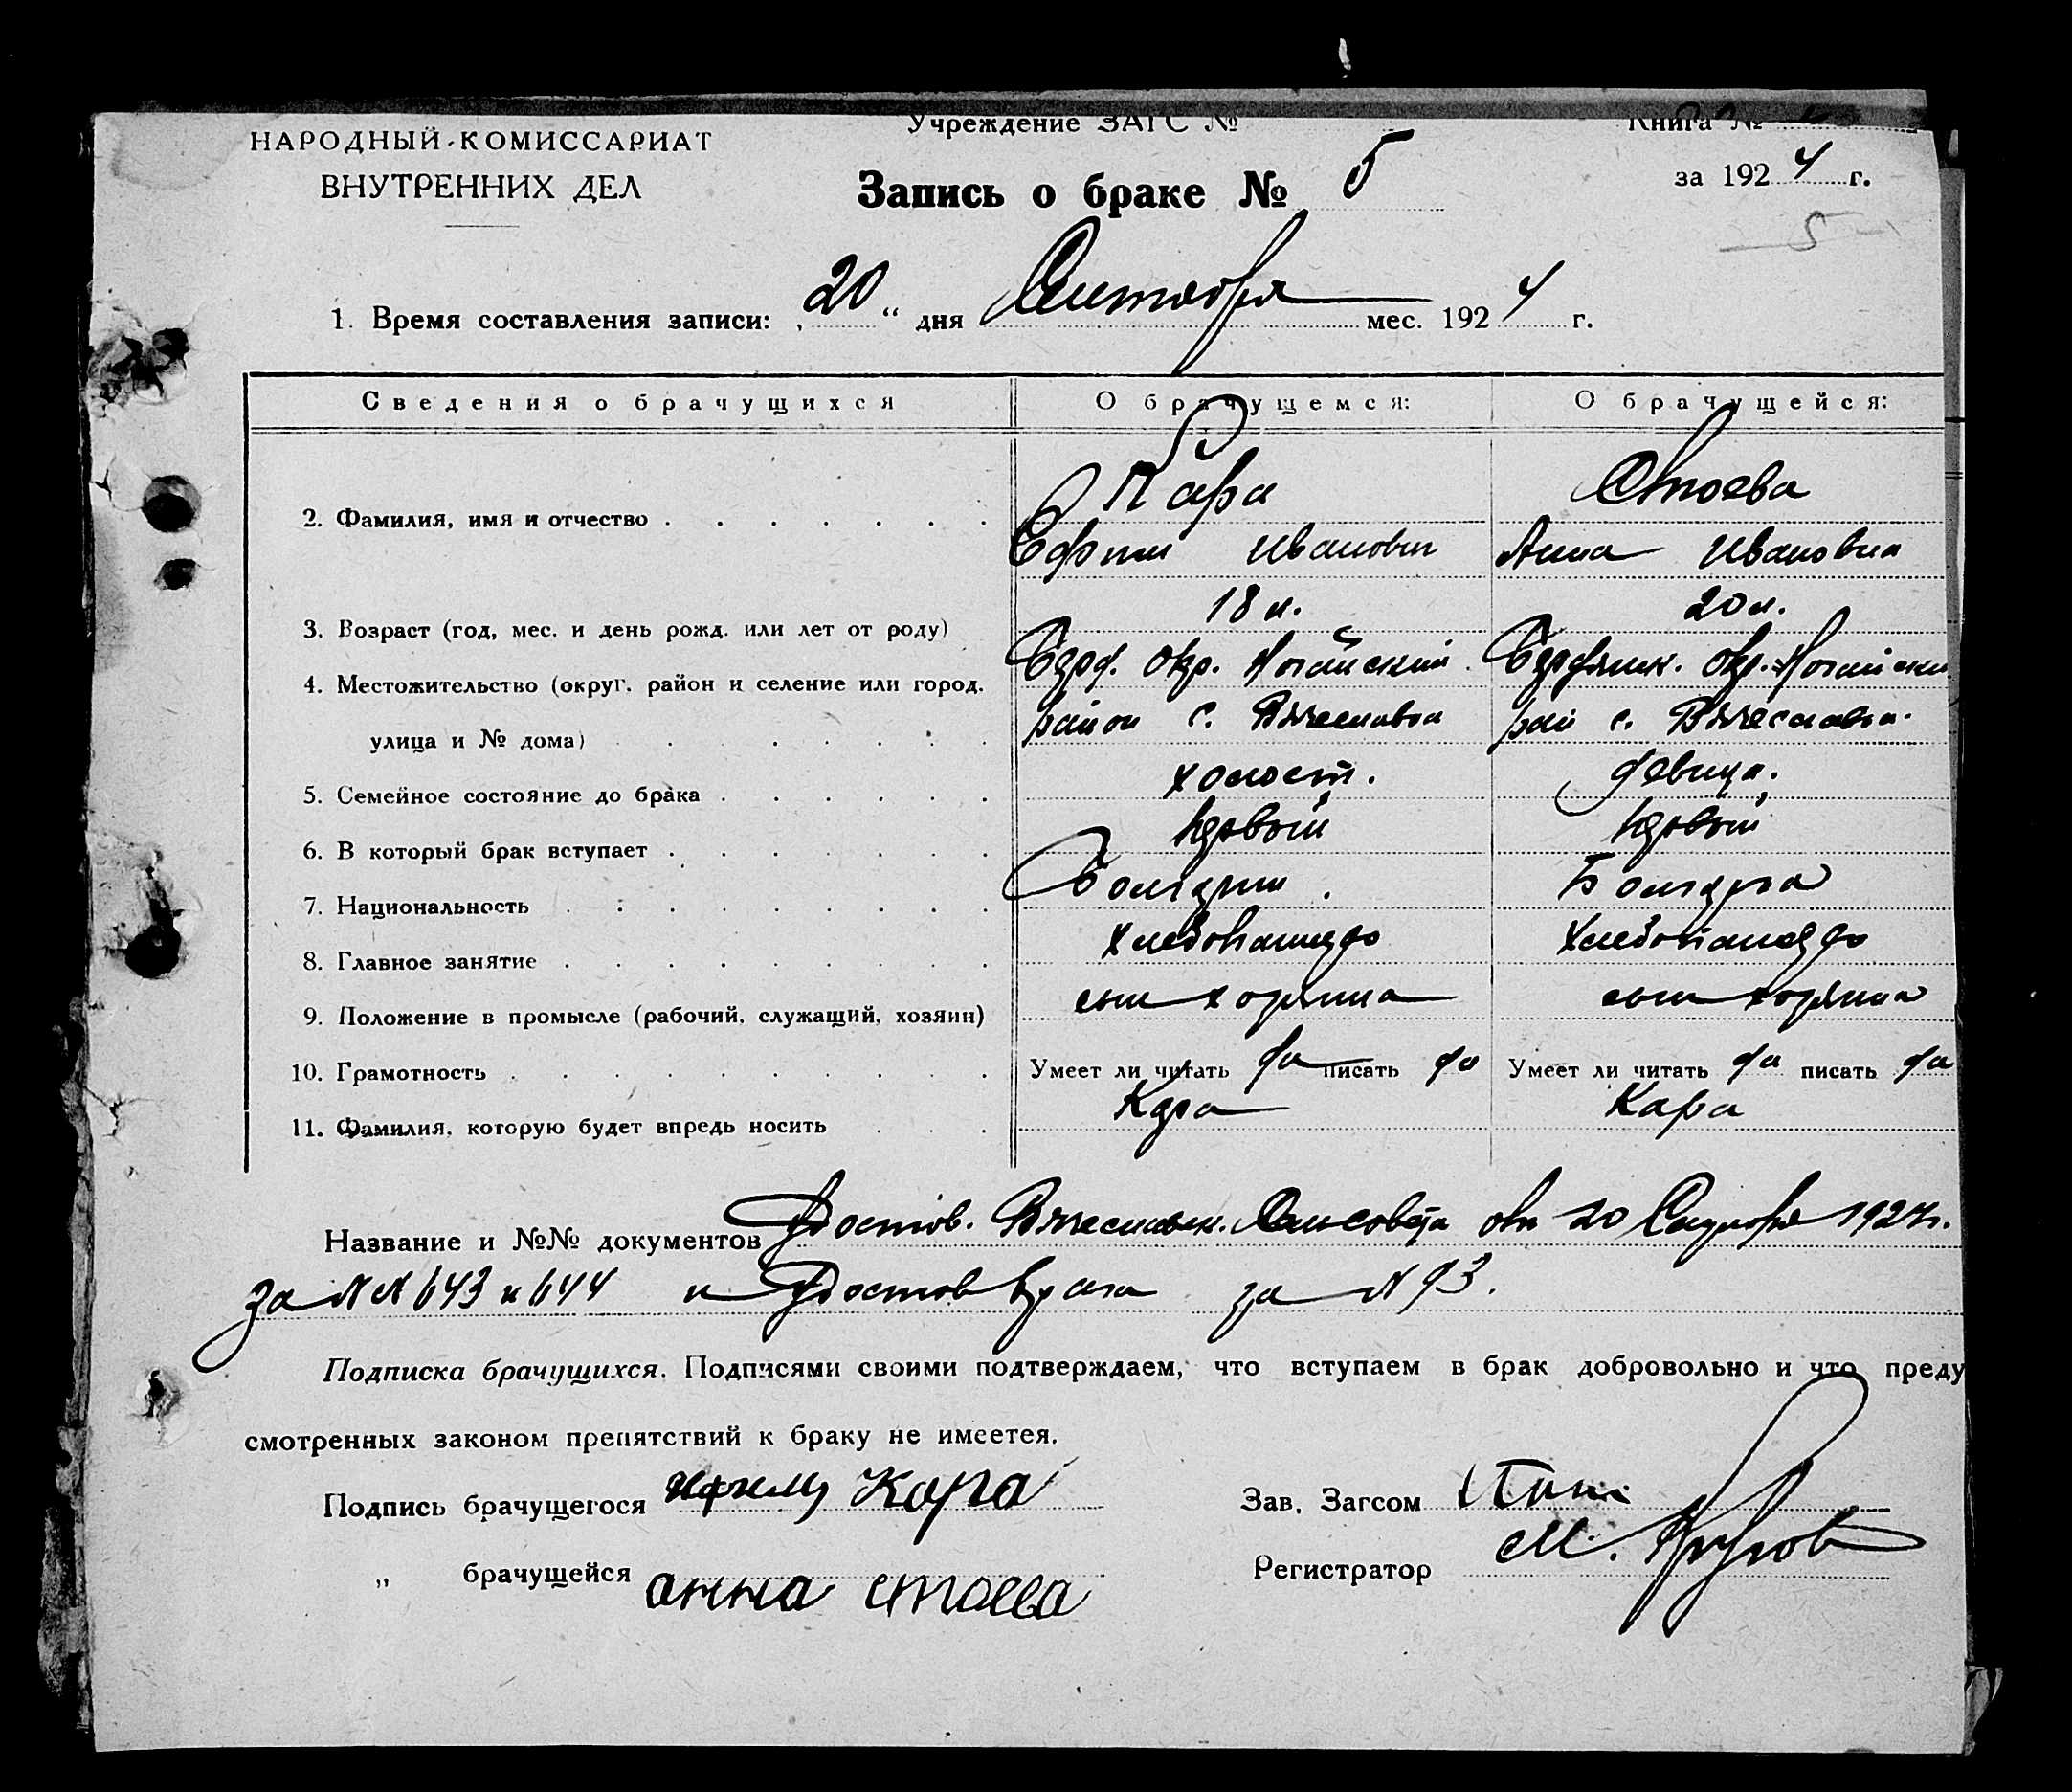 НАРОДНЫЙ КОМИССАРИАТ
ВНУТРЕННИХ ДЕЛ
Учреждение ЗАГС №
Книга №
Запись о браке № 5
за 1924 г.
5
1. Время составления записи: „20“ дня Сентября мес. 1924 г.
Сведения о брачущихся О брачущемся: О брачущейся:
Кара Стоева
2. Фамилия, имя и отчество
Ефрим Иванович Анна Ивановна
18 л. 20 л.
3. Возраст (год, мес. и день рожд. или лет от роду)
Бэрд. окр. Ногайский Бэрдянск. окр. Ногайский
4. Местожительство (округ, район и селение или город,
район с. Вячеславка рай с. Вячеславка.
улица и № дома)
холост. девица.
5. Семейное состояние до брака
первый первый
6. В который брак вступает
Болгарин Болгарка
7. Национальность
Хлебопашество Хлебопашество
8. Главное занятие
сын хозяина хозяина
9. Положение в промысле (рабочий, служащий, хозяин)
10. Грамотность Умеет ли читать да писать да Умеет ли читать да писать да
Кара Кара
11. Фамилия, которую будет впредь носить
Название и №№ документов Удостов. Вячеславск. Сельсовета от 20 Сентября 1924 г.
за № № 643 и 644 и Удостов врача за № 93.
Подписка брачущихся. Подписями своими подтверждаем, что вступаем в брак добровольно и что преду
смотренных законом препятствий к браку не имеется.
Подпись брачущегося Кара Зав. Загсом
„ брачущейся анна стоева Регистратор М.